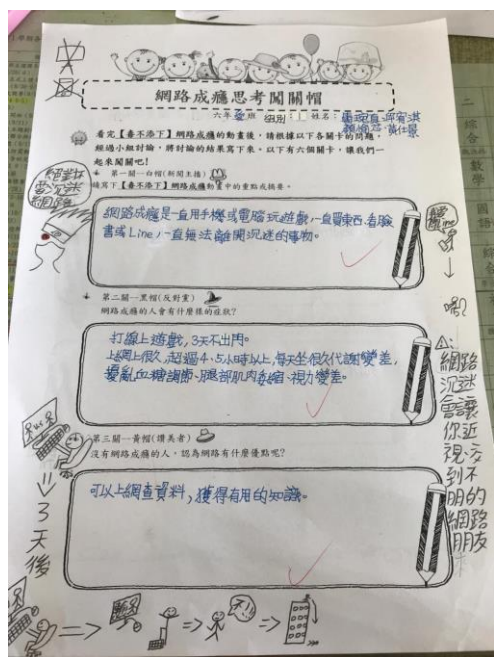 網路成癮思考闖關帽
六年 班 組別： 姓名：
看完【毒不添下】網路成癮的動畫後，請根據以下各關卡的問題，
經過小組討論，將討論的結果寫下來。以下有六個關卡，讓我們一
起來闖關吧！
第一關—白帽(新聞主播)
填寫【毒不添下】網路成癮動畫中的重點或摘要。
網路成癮是一直用手機或電腦玩遊戲,一直買東西、看臉
書或Line,一直無法離開沉迷的事物。
第二關—黑帽(反對黨)
網路成癮的人會有什麼樣的症狀?
打線上遊戲,3天不出門。
上網上很久,超過4、5小時以上,每天坐很久代謝變差,
擾亂血糖調節、腿部肌肉萎縮、視力變差。
第三關—黃帽(讚美者)
沒有網路成癮的人，認為網路有什麼優點呢?
可以上網查資料,獲得有用的知識。
3天後
網路
沉迷
會讓
你近
視、交
到不
明的
網路
朋友
綜合
數學
國語